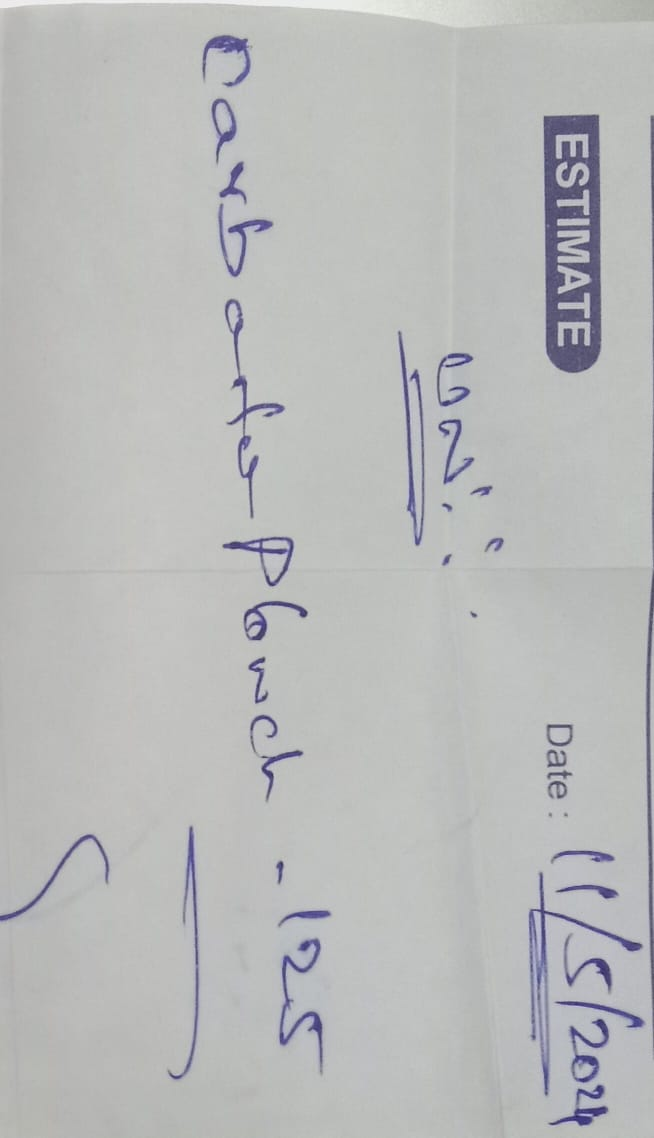 ESTIMATE
Date : 11/5/2024
Carbarfu Pouch - 125